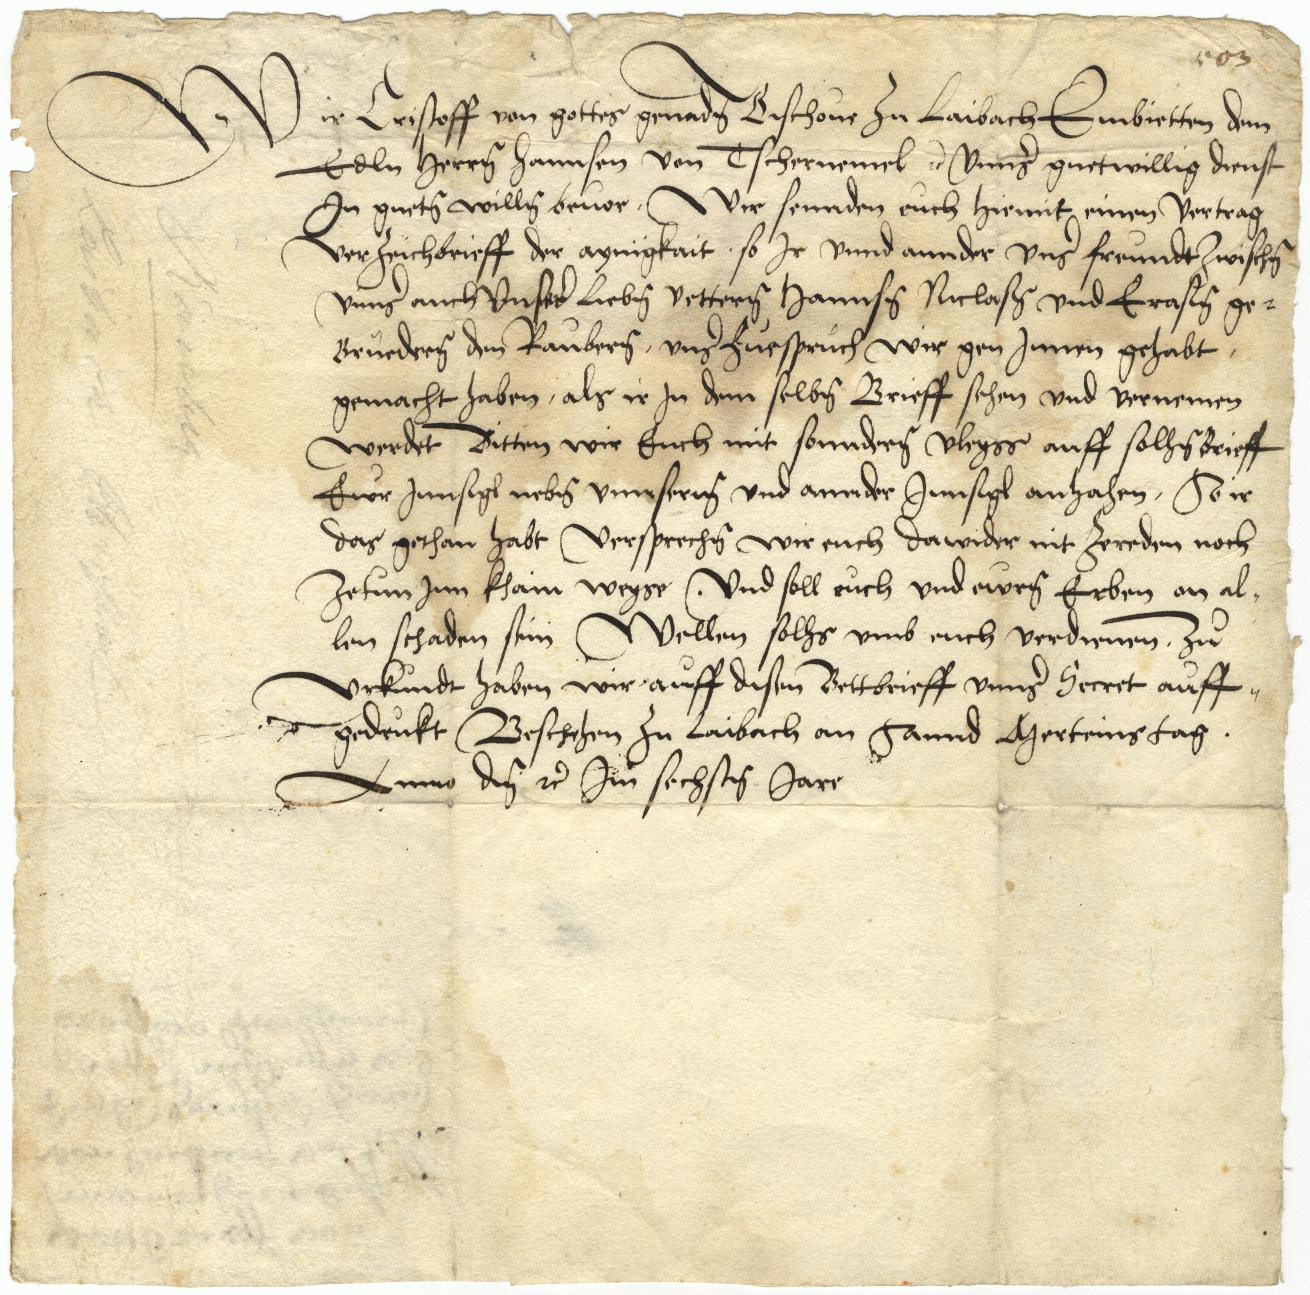 503
Wir Cristoff von gottes genadn̄ Bischoue Zu Laibach Embietten dem
Edln Herrn̄ Hannsen von Tschernemel ꝛc Vnns̄ guetwillig dienst
In guetn̄ willn̄ beuor. Wir sennden euch hiemit einen Vertrag
verzeichbrieff der aynigkait so Ir vnnd annder vns̄ freundt Zwischn̄
vnns̄ auch Vnser Liebn̄ Vettern̄ Hannsn̄ Niclasn̄ vnd Erasm̄ ge-
Bruedern̄ den Raubern̄, vns̄ Zuespruch wir gen Innen gehabt,
gemacht haben, als ir In dem selbn̄ Brieff sehen vnd vernemen
werdet Bitten wir Euch mit sonndern̄ vleyss auff solhn̄ brieff
Ewr Innsigl nebn̄ vnnsern̄ vnd annder Innsigl anhahen, So ir
das gethan habt Versprechn̄ wir euch dawider nit Zereden noch
Zetun Inn khain weyse. Vnd soll euch vnd ewrn̄ Erben on al-
len schaden sein Wellen solhs vmb euch verdienen. Zu
Vrkundt haben wir auff disen Bettbrieff vnns̄ Secret auff-
gedrukt Beschehen Zu Laibach an Sannd Merteins tag.
Anno dn̄ ꝛc Im sechstn̄ Jare